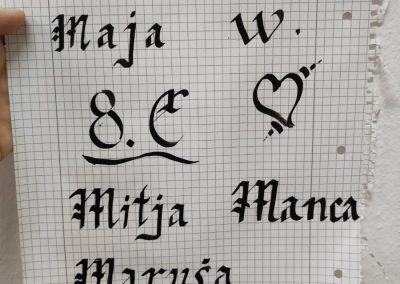 Maja W.
8. C
Mitja Manca
Maruša